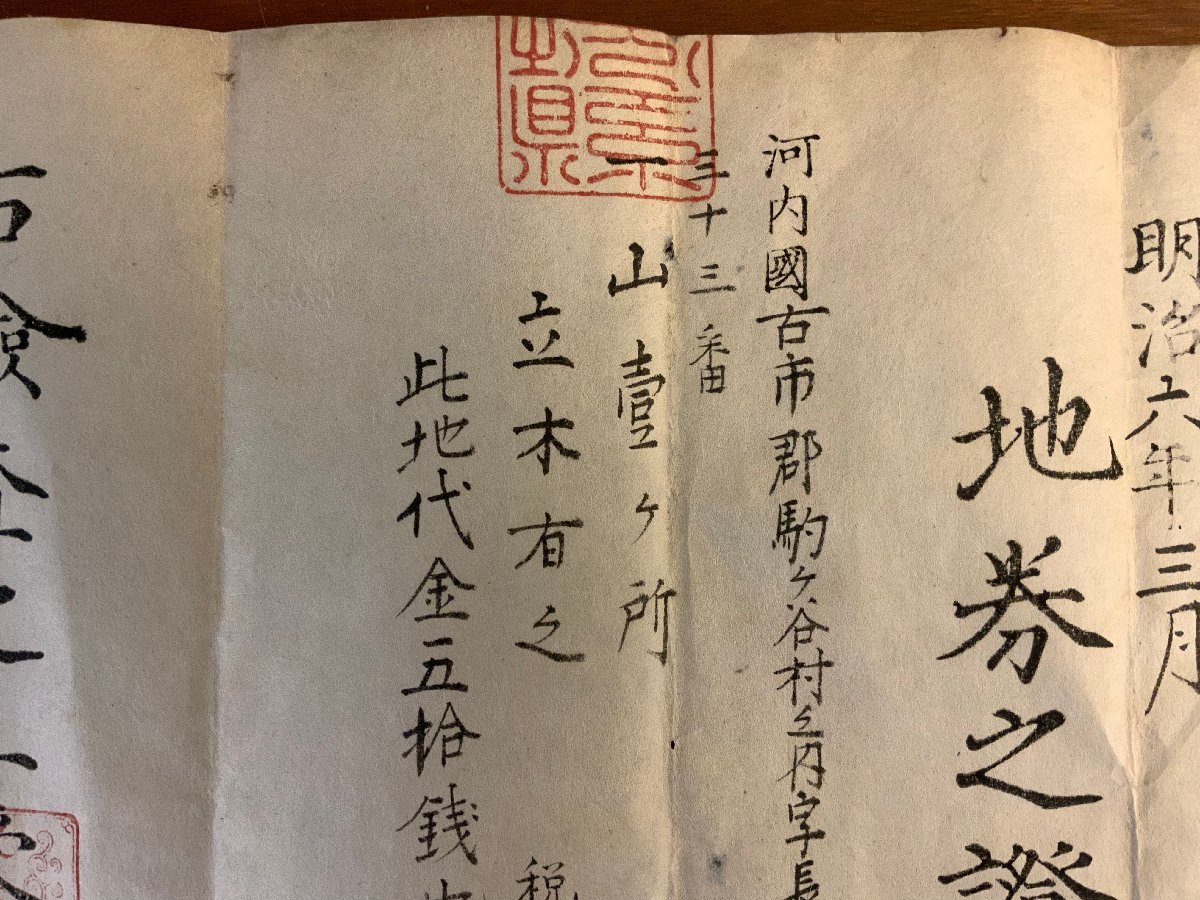 明治六年三月
地券之證
河内國古市郡駒ヶ谷村之内字長
三十三番
山壹ヶ所
立木有之
税
此地代金五拾銭
右検査之上